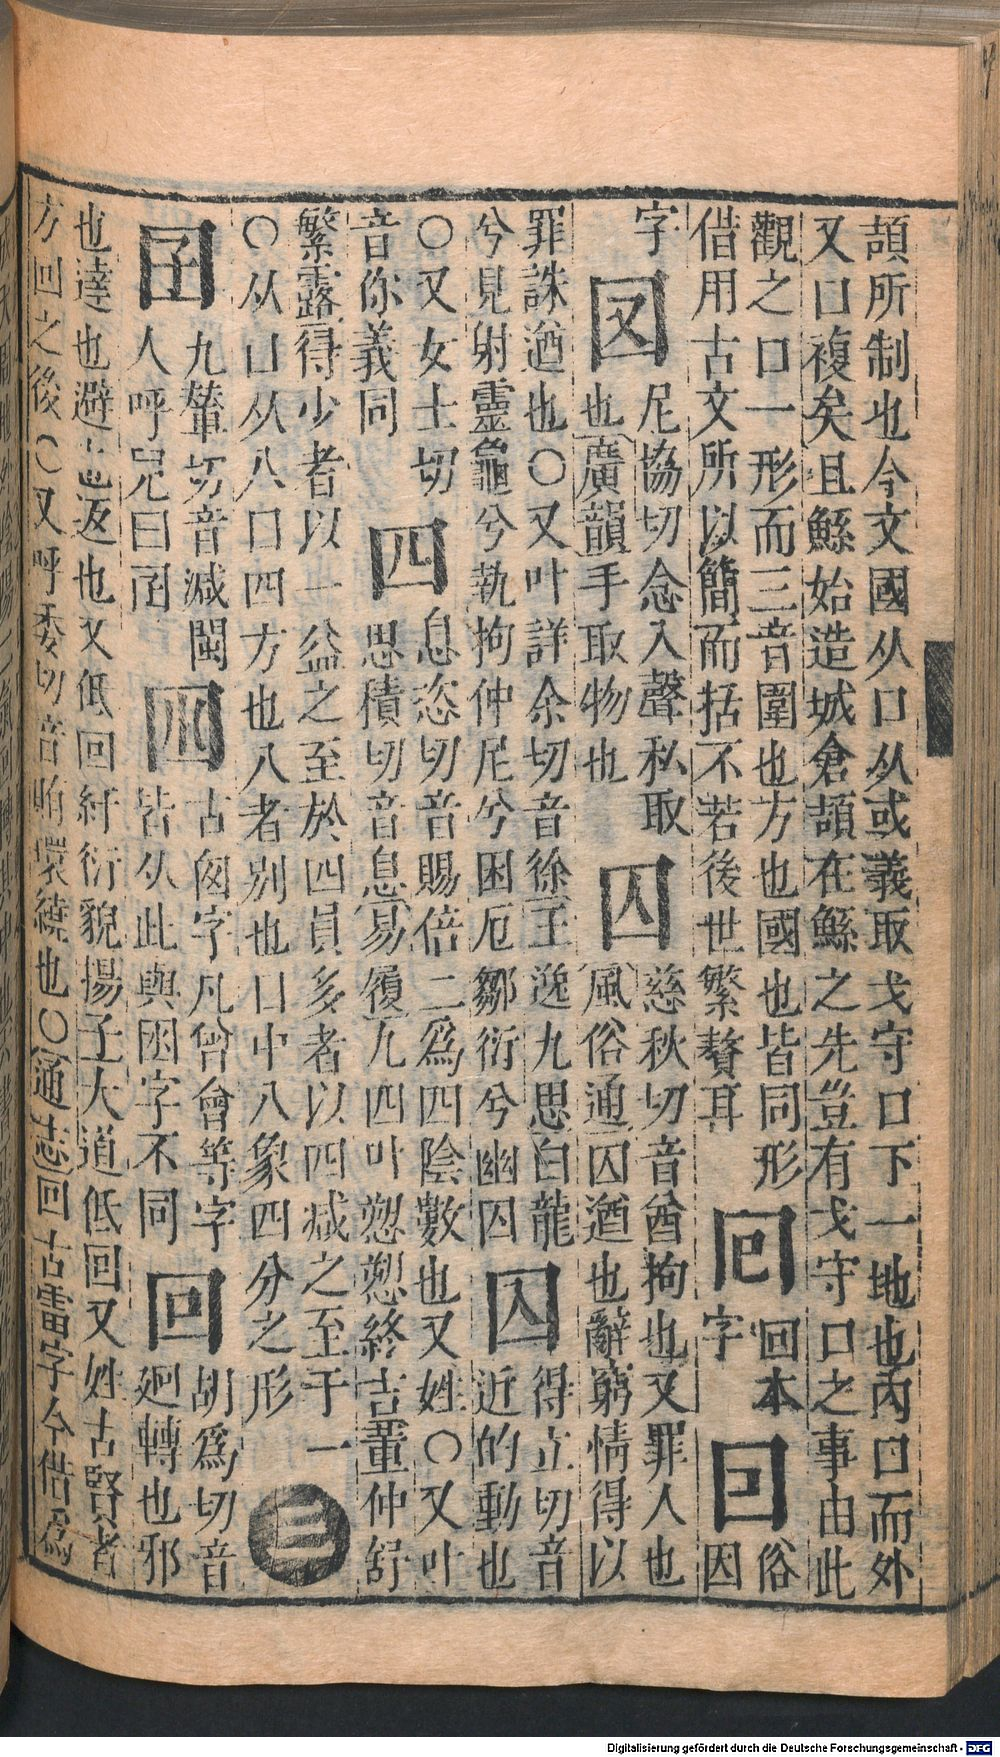 頡所制也今文國从囗从或義取戈守囗下一地也內囗而外
又囗複矣且鯀始造城倉頡在鯀之先豈有戈守囗之事由此
觀之囗一形而三音圍也方也國也皆同形 回本 囘 俗
借用古文所以簡而括不若後世繁贅耳 字 因
字 㘝 尼協切念入聲私取 囚 慈秋切音酋拘也又罪人也
也廣韻手取物也 風俗通囚遒也辭窮情得以
罪誅遒也〇又叶詳余切音徐王逸九思白龍 得立切音
兮見射靈龜兮執拘仲尼兮困厄鄒衍兮幽囚 近的動也
〇又女士切 四 息恣切音賜倍二爲四陰數也又姓〇又叶
音你義同 思積切音息易履九四叶愬愬終吉董仲舒
繁露得少者以一益之至於四員多者以四减之至于一 三
〇从囗从八囗四方也八者別也囗中八象四分之形
囝 九輦切音减閩 古囪字凡曾會等字 回 胡爲切音
人呼兒曰囝 皆从此與囦字不同 廻轉也邪
也違也避也返也又低回紆衍貌揚子大道低回又姓古賢者
方回之後〇又呼委切音賄環繞也〇通志回古雷字今借爲
Digitalisierung gefördert durch die Deutsche Forschungsgemeinschaft - DFG